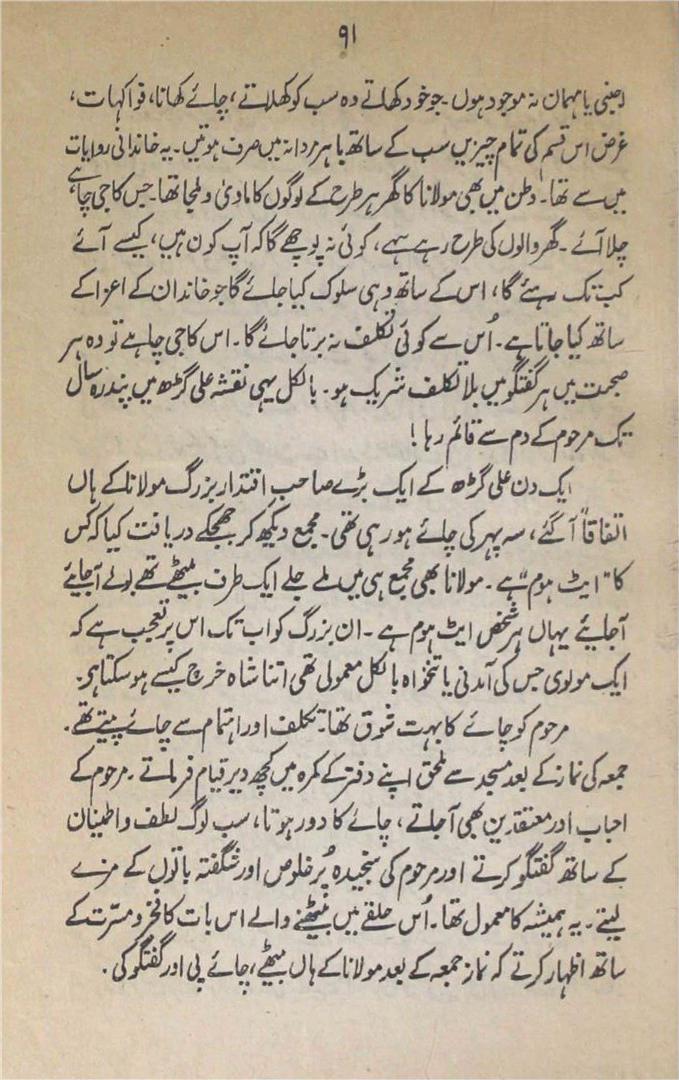 ۹۱
اجنبی یا مہمان نہ موجود ہوں۔ جو خود کھاتے وہ سب کو کھلاتے، چائے کھانا، فواکہات،
غرض اس قسم کی تمام چیزیں سب کے ساتھ باہر مردانہ میں صرف ہوتیں۔ یہ خاندانی روایات
میں سے تھا۔ وطن میں بھی مولانا کا گھر ہر طرح کے لوگوں کا مادیٰ و ملجا تھا۔ جس کا جی چاہے
چلا آئے۔ گھر والوں کی طرح رہے سہے، کوئی نہ پوچھے گا کہ آپ کون ہیں، کیسے آئے
کب تک رہئے گا، اس کے ساتھ وہی سلوک کیا جائے گا جو خاندان کے اعزا کے
ساتھ کیا جاتا ہے۔ اُس سے کوئی تکلف نہ برتا جائے گا۔ اس کا جی چاہے تو وہ ہر
صحبت میں ہر گفتگو میں بلا تکلف شریک ہو۔ بالکل یہی نقشہ علی گڑھ میں پندرہ سال
تک مرحوم کے دم سے قائم رہا!
ایک دن علی گڑھ کے ایک بڑے صاحب اقتدار بزرگ مولانا کے ہاں
اتفاقاً آگئے، سہ پہر کی چائے ہو رہی تھی۔ مجمع دیکھ کر جھجکے دریافت کیا کہ کس
کا "ایٹ ہوم" ہے۔ مولانا بھی مجمع ہی میں ملے جلے ایک طرف بیٹھے تھے بولے آجایئے
آجایئے یہاں ہر شخص ایٹ ہوم ہے۔ ان بزرگ کو اب تک اس پر تعجب ہے کہ
ایک مولوی جس کی آمدنی یا تنخواہ بالکل معمولی تھی اتنا شاہ خرچ کیسے ہو سکتا ہے۔
مرحوم کو چائے کا بہت شوق تھا۔ تکلف اور اہتمام سے چائے پیتے تھے۔
جمعہ کی نماز کے بعد مسجد سے ملحق اپنے دفتر کے کمرہ میں کچھ دیر قیام فرماتے۔ مرحوم کے
احباب اور معتقدین بھی آجاتے، چائے کا دور ہوتا، سب لوگ لطف و اطمینان
کے ساتھ گفتگو کرتے اور مرحوم کی سنجیدہ پُر خلوص اور شگفتہ باتوں کے مزے
لیتے۔ یہ ہمیشہ کا معمول تھا۔ اُس حلقے میں بیٹھنے والے اس بات کا فخر و مسرت کے
ساتھ اظہار کرتے کہ نماز جمعہ کے بعد مولانا کے ہاں بیٹھے، چائے پی اور گفتگو کی۔